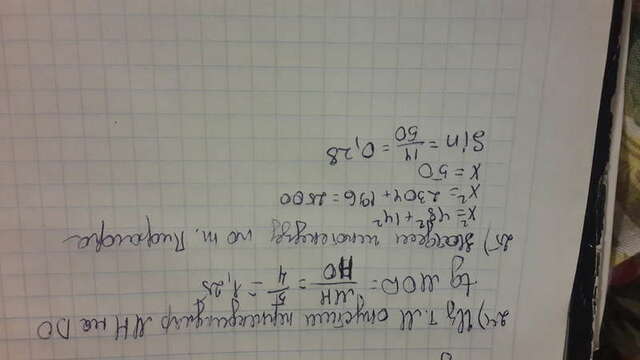 24) Из т. М опустим перпендикуляр МН на DO
tg MOD = MH/HO = 5/4 = 1,25
25) Найдем гипотенузу по т. Пифагора
x² = 48² + 14²
x² = 2304 + 196 = 2500
x = 50
Sin = 14/50 = 0,28